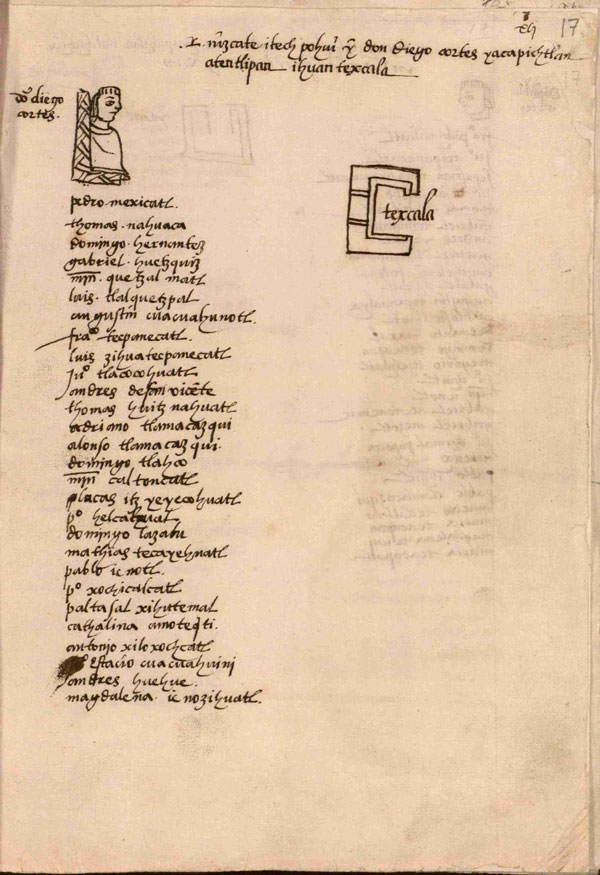 17
nizcate itech pohui y don diego cortes yacapichtlan
atentlipan ihuan texcala
do diego
cortes.
texcala
pedro. mexicatl.
thomas. nahuaca
domingo. hernantez
gabriel. huetzquiz
min. quetzal matl
luis. tlalquetzpal
augustin cuacuahunotl.
franco tecpanecatl.
luis zihuatecpanecatl
juo tlacocohuatl
andres de san vicēte
thomas huitz nahuatl
adriano tlamacazqui
alonso tlamacazqui.
domingo tlahco
min caltoncatl
lucas itz yeyecohuatl
po
domingo lazaru
mathias tecayehuatl
pablo icnotl.
po xochicalcatl
paltasal xihutemal
cathalina amoteqti.
antonio xiloxochcatl
estacio cuacuahuini
andres huehue.
magdalena. icnozihuatl.